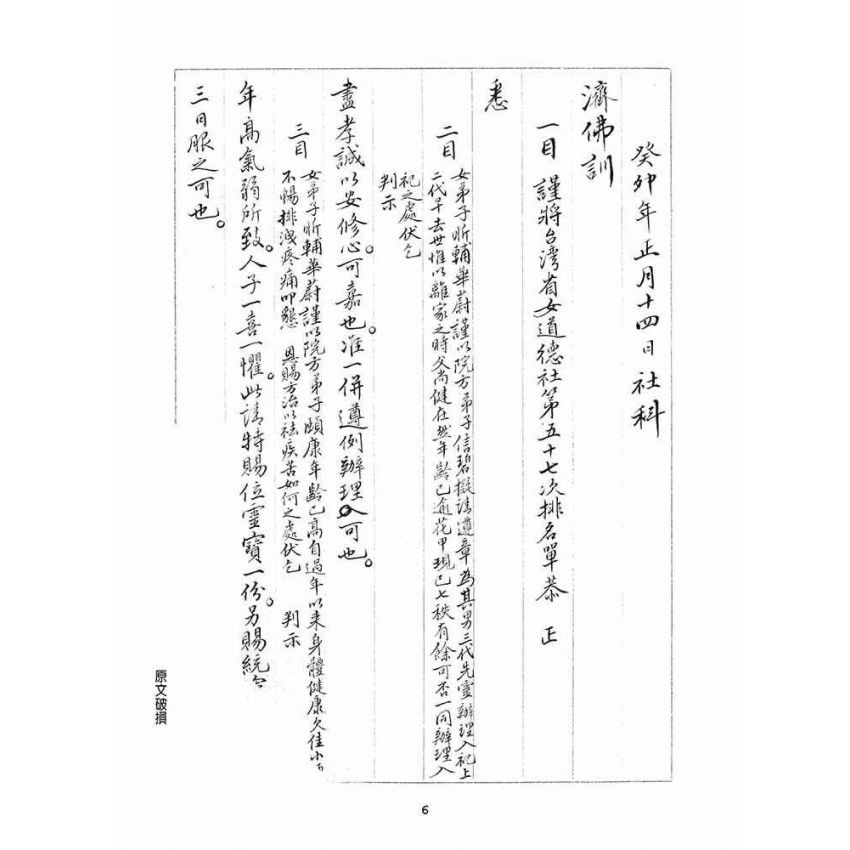 癸卯年正月十四日社科
濟佛訓
一目 謹將台湾省女道德社第五十七次排名單恭 正
悉
二目 女弟子昕輔華蔚謹以院方弟子信碧擬請遵章為其男三代先靈辦理入祀上
二代早去世惟以離家之時父尚健在然年齡已逾花甲現已七秩有餘可否一同辦理入
祀之處伏乞
判示
盡孝誠以安修心。可嘉也。准一併遵例辦理入可也。
三目 女弟子昕輔華蔚謹以院方弟子頤康年齡已高自過年以来身體健康欠佳小
不暢排洩疼痛叩懇 恩賜方治以祛疾苦如何之處伏乞 判示
年高氣弱所致。人子一喜一懼。此請特賜位靈寶一份。另賜統
三日服之可也。
原文破損
6